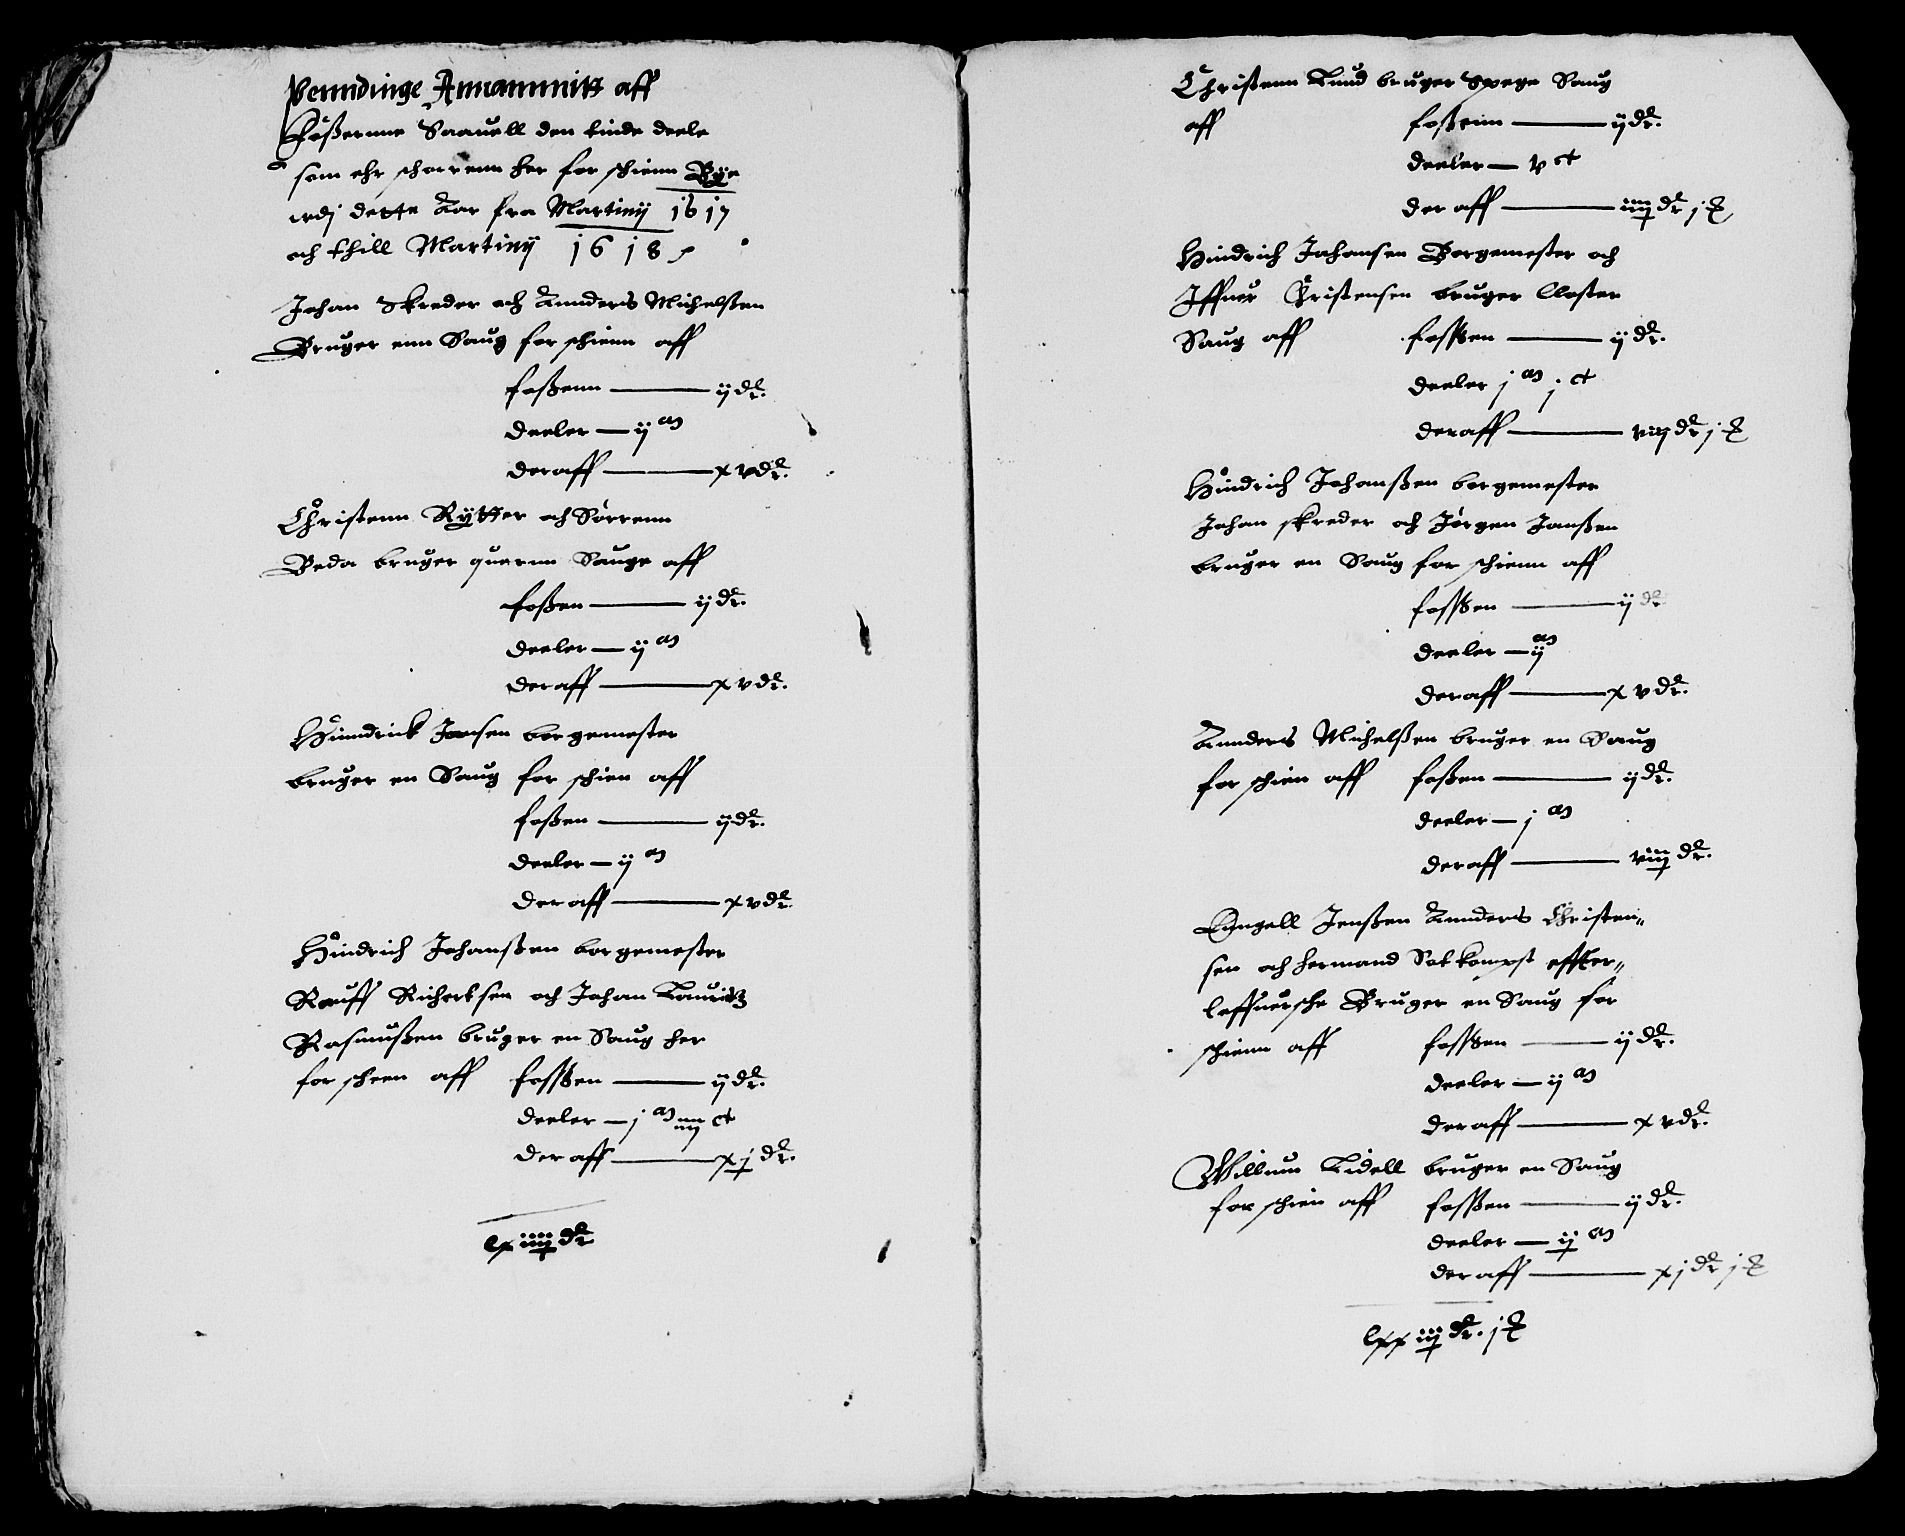 Penndinge Annammitt aff
Foßernne Saauell den tinde deele
som ehr schorrenn her for schienn Bye
udj dette Aar fra Martiny 1617
och thill Martiny 1618
Johan Skreder och Annders Michelsten
Bruger enn Saug for schienn aff
foßenn — ij dr.
deeler — ij m
deraff — xv dr.
Christenn Rytter och Sørrenn
Beda bruger quernn Sauge aff
foßen — ij dr.
deeler — ij m
deraff — xv dr.
Hinndrick Jonsen borgemester
bruger en Saug for schien aff
foßen — ij dr.
deeler — ij m
deraff — xv dr.
Hindrich Johanßen borgemester
Rouff Richertsen och Johan Lauritz
Rasmußen bruger en Saug her
for scheen aff fossßen — ij dr.
deeler — j m iiij ct
deraff — xj dr.
lx iiij dr
Christenn Lund bruger Spege Saug
aff foßenn — ij dr.
deeler — v ct
der aff — iiij dr j
Hindrich Johansen Borgemester och
Iffuer Christensen bruger Closter
Saug aff fossßen — ij dr.
deeler j m j ct
deraff — viij dr j
Hindrich Johanßen borgemester
Johan skreder och Jørgen Janßen
bruger en Saug for schienn aff
fossßen — ij dr
deeler — ij m
deraff — xv dr.
Annders Michelßen bruger en Saug
for schien aff foßen — ij dr.
deeler — j m
deraff — viij dr.
Engell Jenßen Annders Christen„
sen och hermand Sotkompst effter„
leffuersche Bruger en Saug for
schienn aff fossßen — ij dr.
deeler — ij m
deraff — xv dr.
Willum Lidell bruger en Saug
for schien aff fossßen — ij dr.
deeler — ij m
deraff — xj dr j
lxx iij dr. j